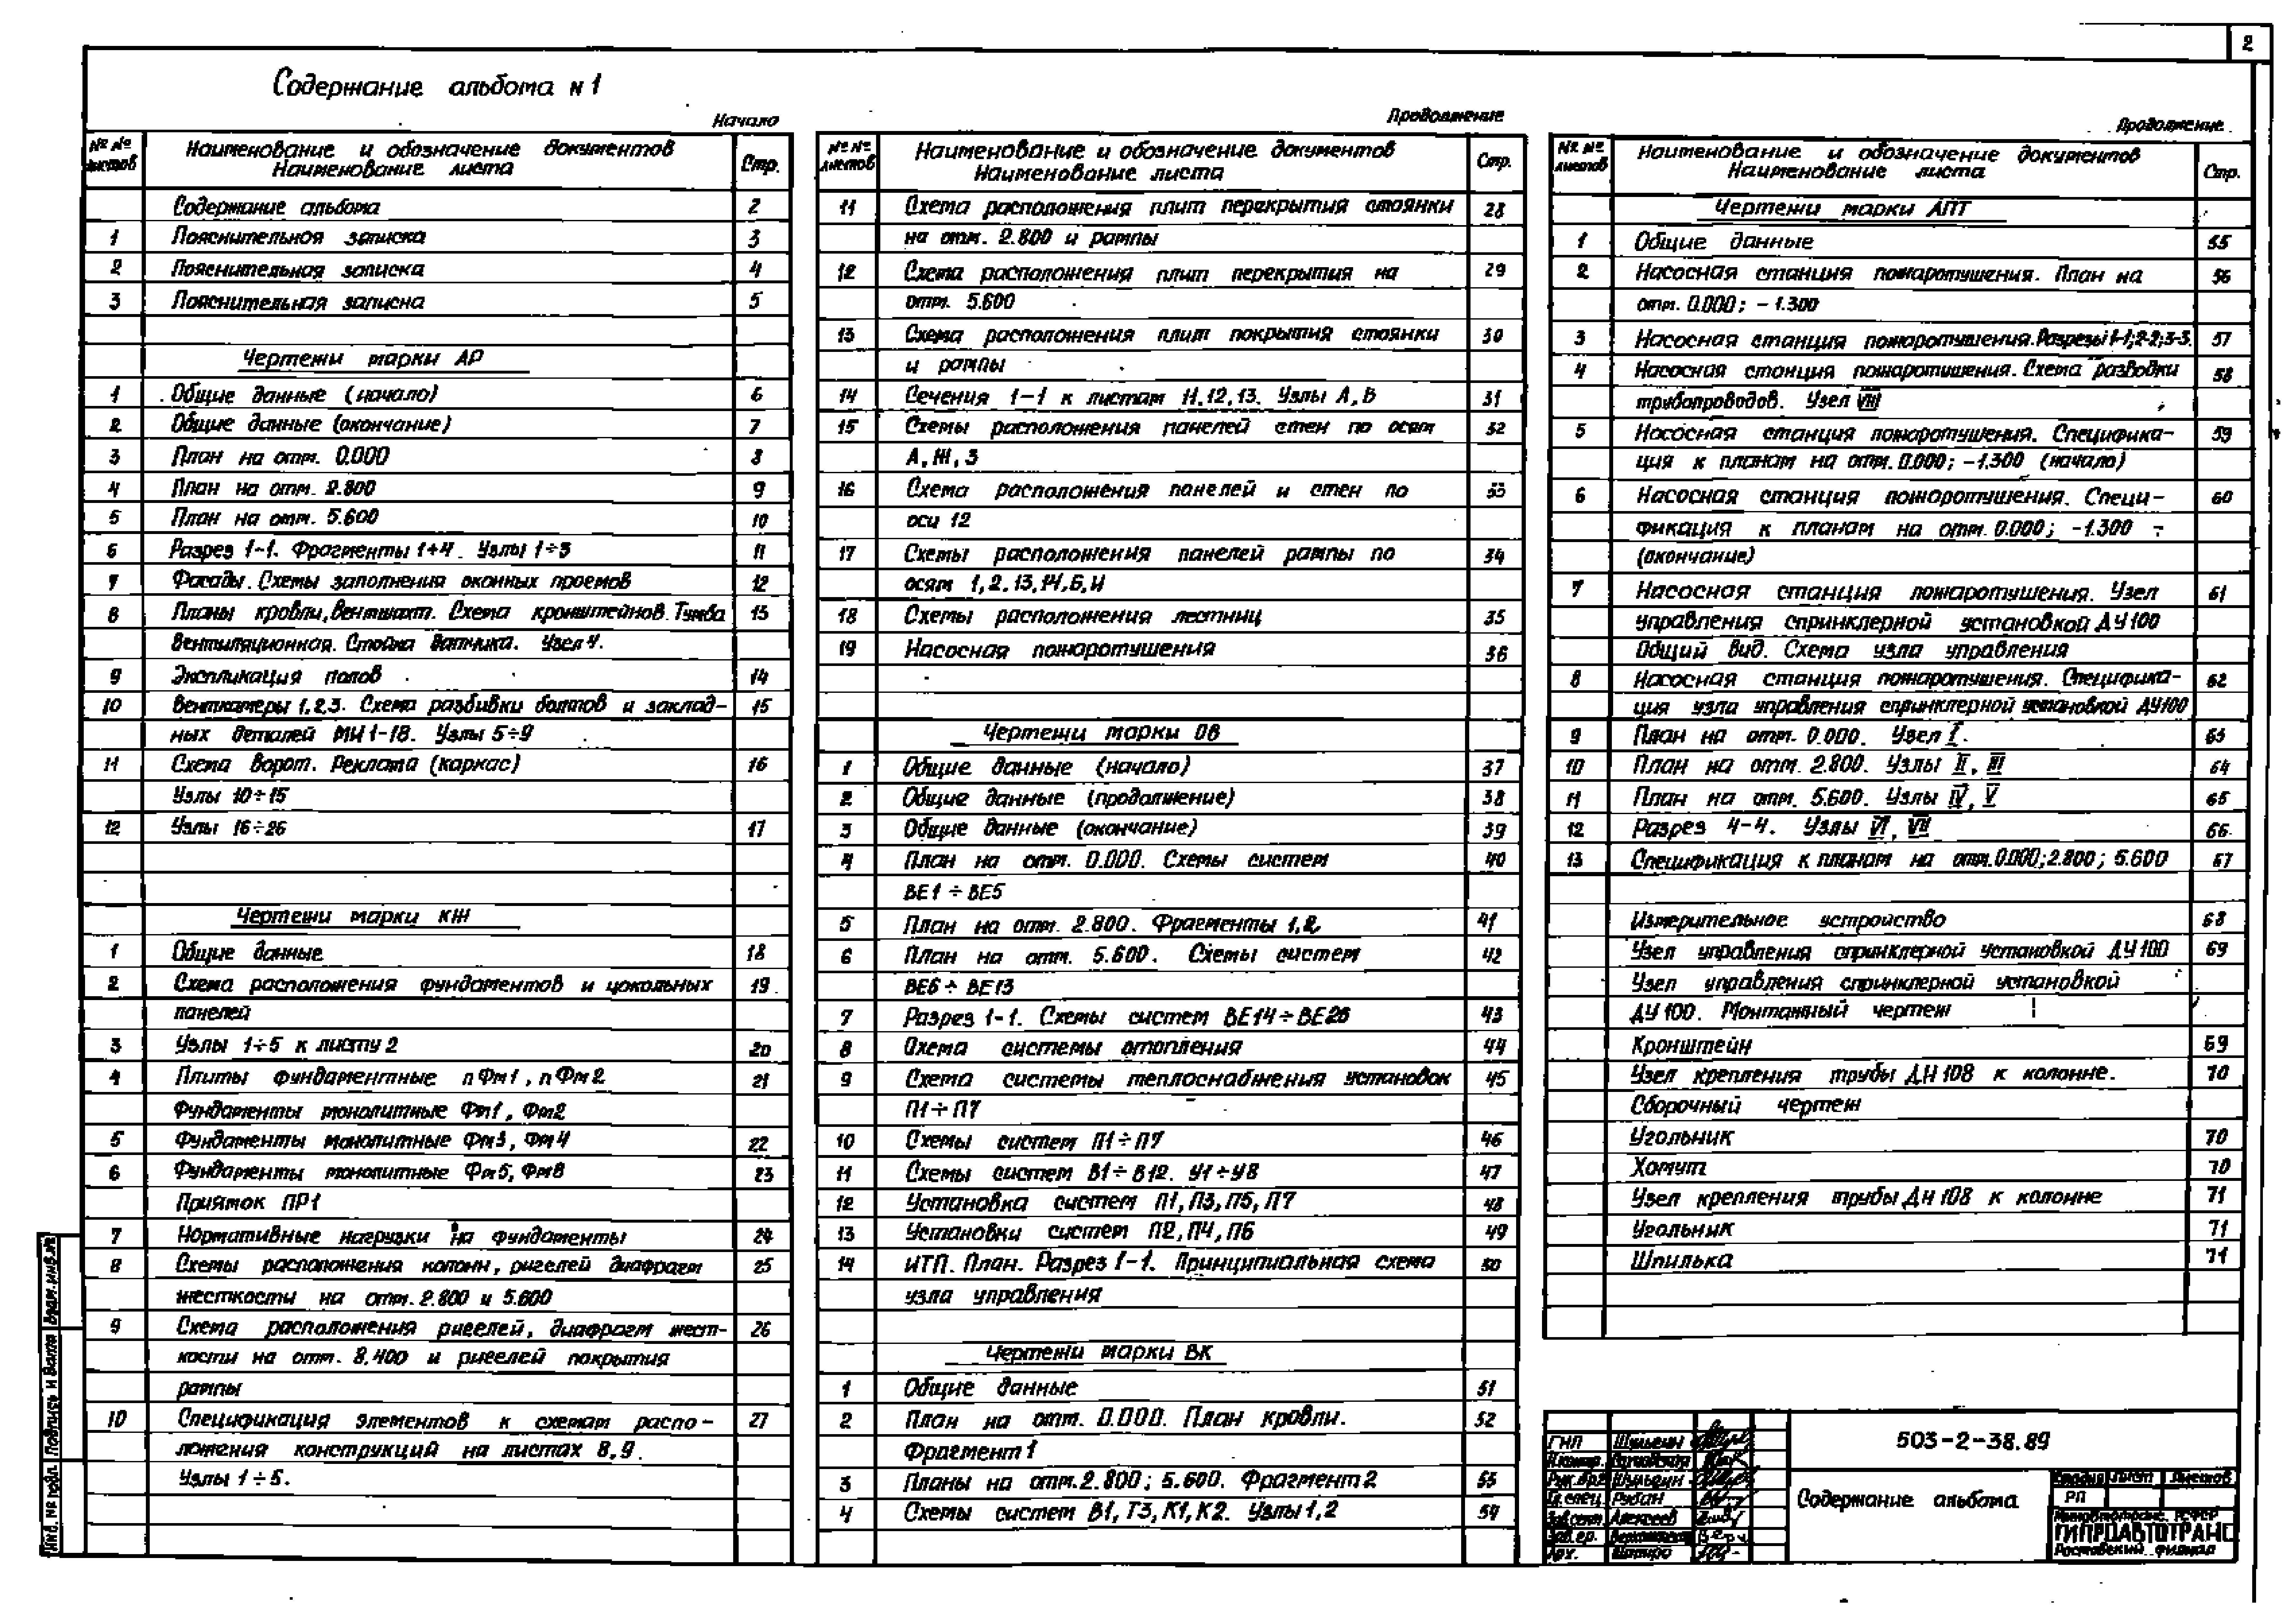 2
Содержание альбома н 1
Начало
№ № листов
Наименование и обозначение документов
Наименование листа
Стр.
Содержание альбома 2
1 Пояснительная записка 3
2 Пояснительная записка 4
3 Пояснительная записка 5
Чертежи марки АР
1 Общие данные (начало) 6
2 Общие данные (окончание) 7
3 План на отм. 0.000 8
4 План на отм. 2.800 9
5 План на отм. 5.600 10
6 Разрез 1-1. Фрагменты 1÷4. Узлы 1÷3 11
7 Фасады. Схемы заполнения оконных проемов 12
8 Планы кровли, вентшахт. Схема кронштейнов. Тумба 13
вентиляционная. Стойка датчика. Узел 4.
9 Экспликация полов 14
10 Венткамеры 1,2,3. Схема разбивки болтов и заклад- 15
ных деталей МН 1-18. Узлы 5÷9
11 Схема ворот. Реклама (каркас) 16
Узлы 10÷15
12 Узлы 16÷26 17
Чертежи марки КЖ
1 Общие данные 18
2 Схема расположения фундаментов и цокольных 19
панелей
3 Узлы 1÷5 к листу 2 20
4 Плиты фундаментные пФм1, пФм2 21
Фундаменты монолитные Фм1, Фм2
5 Фундаменты монолитные Фм3, Фм4 22
6 Фундаменты монолитные Фм5, Фм6 23
Приямок ПР1
7 Нормативные нагрузки на фундаменты 24
8 Схемы расположения колонн, ригелей диафрагм 25
жесткости на отм. 2.800 и 5.600
9 Схема расположения ригелей, диафрагм жест- 26
кости на отм. 8.400 и ригелей покрытия
рампы
10 Спецификация элементов к схемам распо- 27
ложения конструкций на листах 8,9.
Узлы 1÷5.
Продолжение
№ № листов
Наименование и обозначение документов
Наименование листа
Стр.
11 Схема расположения плит перекрытия стоянки 28
на отм. 2.800 и рампы
12 Схема расположения плит перекрытия на 29
отм. 5.600
13 Схема расположения плит покрытия стоянки 30
и рампы
14 Сечения 1-1 к листам 11,12,13. Узлы А,Б 31
15 Схемы расположения панелей стен по осям 32
А,Ж,3
16 Схема расположения панелей и стен по 33
оси 12
17 Схемы расположения панелей рампы по 34
осям 1,2,13,14,Б,И
18 Схемы расположения лестниц 35
19 Насосная пожаротушения 36
Чертежи марки ОВ
1 Общие данные (начало) 37
2 Общие данные (продолжение) 38
3 Общие данные (окончание) 39
4 План на отм. 0.000. Схемы систем 40
ВЕ1 ÷ ВЕ5
5 План на отм. 2.800. Фрагменты 1,2 41
6 План на отм. 5.600. Схемы систем 42
ВЕ6 ÷ ВЕ13
7 Разрез 1-1. Схемы систем ВЕ14÷ВЕ26 43
8 Схема системы отопления 44
9 Схема системы теплоснабжения установок 45
П1÷П7
10 Схемы систем П1÷П7 46
11 Схемы систем В1÷В12. У1÷У8 47
12 Установка систем П1, П3, П5, П7 48
13 Установки систем П2, П4, П6 49
14 ИТП. План. Разрез 1-1. Принципиальная схема 50
узла управления
Чертежи марки ВК
1 Общие данные 51
2 План на отм. 0.000. План кровли. 52
Фрагмент 1
3 Планы на отм. 2.800; 5.600. Фрагмент 2 53
4 Схемы систем В1, Т3, К1, К2. Узлы 1,2 54
Продолжение
№ № листов
Наименование и обозначение документов
Наименование листа
Стр.
Чертежи марки АПТ
1 Общие данные 55
2 Насосная станция пожаротушения. План на 56
отм. 0.000; -1.300
3 Насосная станция пожаротушения. Разрезы 1-1; 2-2; 3-3. 57
4 Насосная станция пожаротушения. Схема разводки 58
трубопроводов. Узел VIII
5 Насосная станция пожаротушения. Специфика- 59
ция к планам на отм. 0.000; -1.300 (начало)
6 Насосная станция пожаротушения. Специ- 60
фикация к планам на отм. 0.000; -1.300
(окончание)
7 Насосная станция пожаротушения. Узел 61
управления спринклерной установкой ДУ100
Общий вид. Схема узла управления
8 Насосная станция пожаротушения. Специфика- 62
ция узла управления спринклерной установкой ДУ100
9 План на отм. 0.000. Узел I. 63
10 План на отм. 2.800. Узлы II, III 64
11 План на отм. 5.600. Узлы IV, V 65
12 Разрез 4-4. Узлы VI, VII 66
13 Спецификация к планам на отм. 0.000; 2.800; 5.600 67
Измерительное устройство 68
Узел управления спринклерной установкой ДУ100 69
Узел управления спринклерной установкой
ДУ100. Монтажный чертеж
Кронштейн 69
Узел крепления трубы ДН108 к колонне. 70
Сборочный чертеж
Угольник 70
Хомут 70
Узел крепления трубы Дн 108 к колонне 71
Угольник 71
Шпилька 71
503-2-38.89
Содержание альбома
ГИП Шульгин
Н.контр.
Рук.бр. Шульгин
Гл.спец. Рубан
Зав.сект. Алексеев
Зав.гр.
Арх. Шапиро
Стадия Лист Листов
РП
Минавтотранс РСФСР
ГИПРОАВТОТРАНС
Ростовский филиал
Инв. № подл.
Подпись и дата
Взам. инв. №